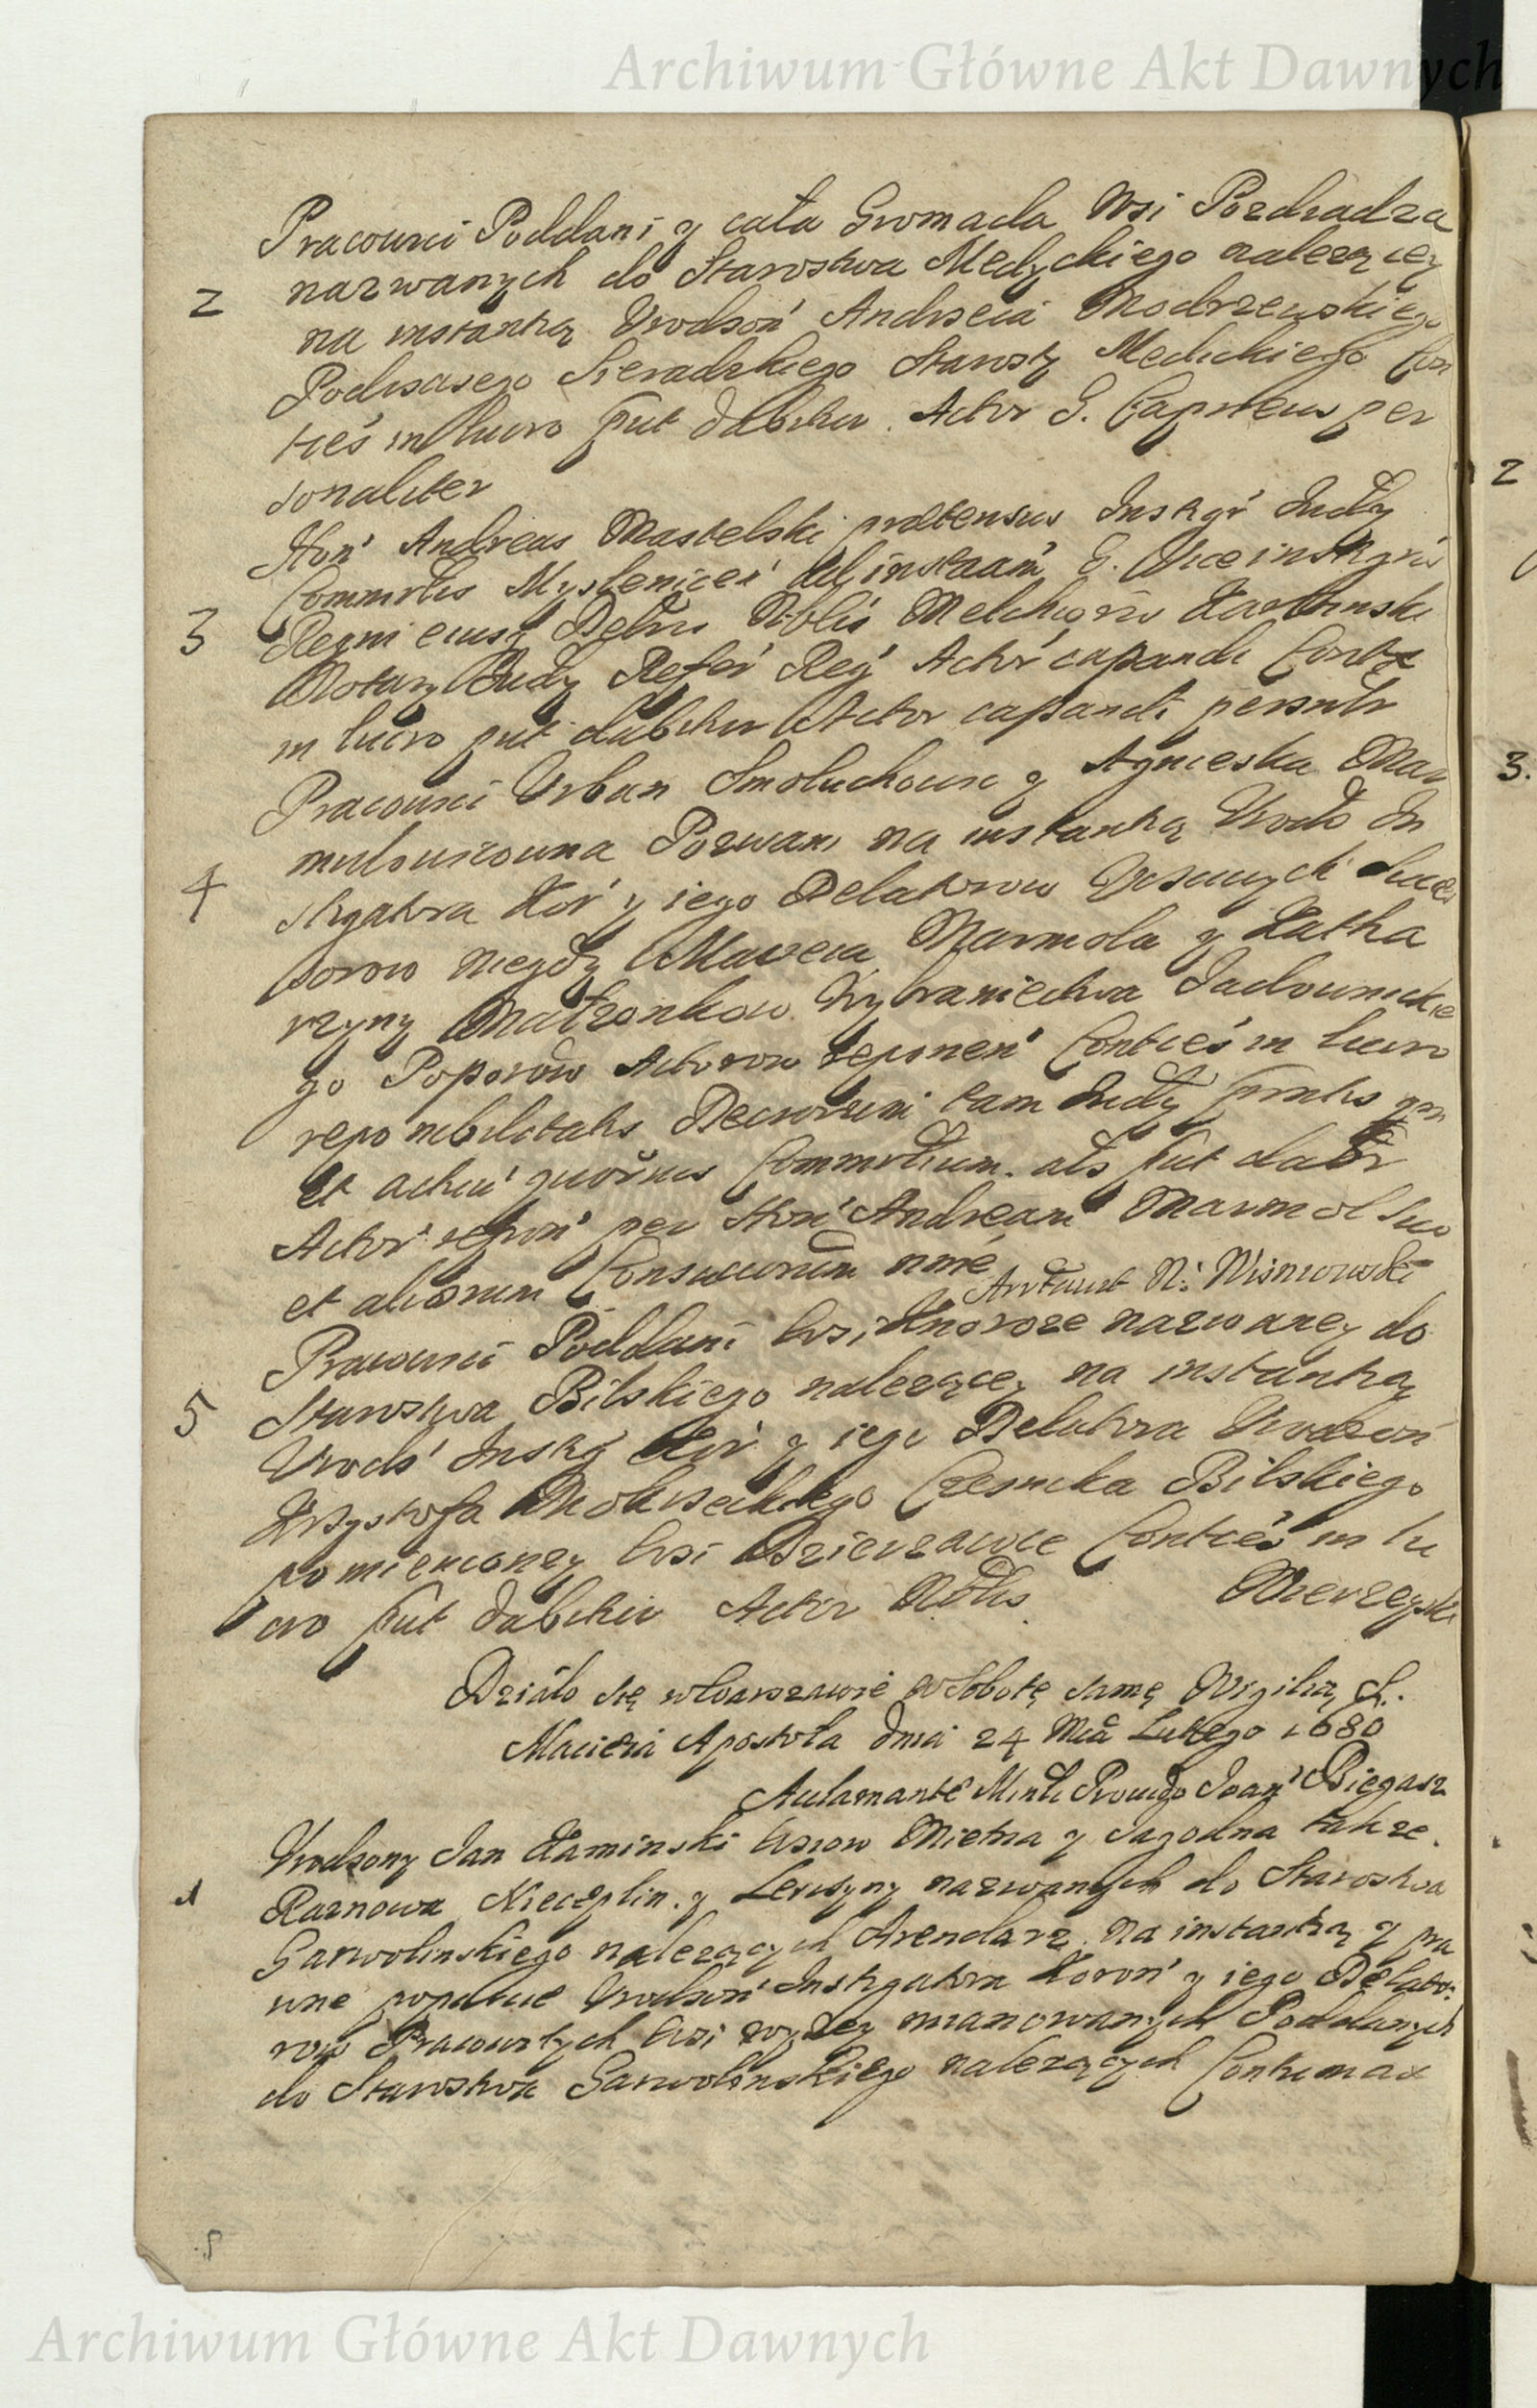 Archiwum Główne Akt Dawnych
Pracowici Poddani y cała Gromada Wsi Pozdradza
nazwanych do Starostwa Medyckiego należącey
2
na instantią Urodzoń Andrzeia Modrzewskiego
Podczaszego Sieradzkiego Starosty Medickiego Con
tieś in lucro put dabitur. Actor G. Capitneus per
sonaliter
Hon' Andreas Mastelski prætensus Instgr' Judy
Commrlis Myslenicen' ad instaam' G. Viceinstgris
3
Regni eiusq Deltris Nblis Melchioris
Notary Judy Refer' Reg' Actor' capandi Contx
in lucro put dabitur Actor capandi personlr
Pracowici Urban Smoluchowic y Agnieszka Mar
mulowicowna Pozwani na instantią Urodz In
4
stygatora Kor' y iego Delatorow Succes
sorow niegdy Macieia Marmola y Katha
rzyny Małżonkow Wybraniectwa Jadownickie
go Poporow Actorow reponen' Contieś in lucro
reponibilitatis Decretum tam Judy
et actus quorus Commrlium. als put dabr
Actor' repon' per Hon' Andream Marmol suo
et aliorum Consuccorum nore
N: Wisniowski
Pracowici Poddani Wsi Knoroze nazwaney do
5
Starostwa Bilskiego należącey na instantią
Urodz' Instg Kor' y iego Delatora Urodzon
Krzysztofa Mokrzeckiego Czesnika Bilskiego
pomienioney Wsi Dzierzawce Contieś in lu
cro put dabitur Actor Nblis Mierzeyski
Działo się w Warszawie w Sobotę samę Wigilią S.
Macieia Apostoła dnia 24 Mca Lutego 1680
Aclamante Mintli Provido Joan' Biegasz
Urodzony Jan Kaminski Wsiow Mietna y Jagodna także
1
Raznowa Niecieplin y Lewszyny nazwanych do Starostwa
Garwolinskiego należących Arendarz na instantią y pra
wne popatcie Urodzon' Instygatora Koron' y iego Delato:
row Pracowitych Wsi wyżey mianowanych Poddanych
do Starostwa Garwolinskiego należących Contumax
2
3.
Archiwum Główne Akt Dawnych